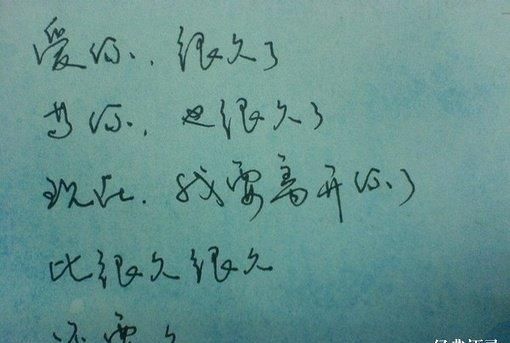 爱你.很久了
等你.也很久了
现在.我要离开你了
比很久很久
还要久